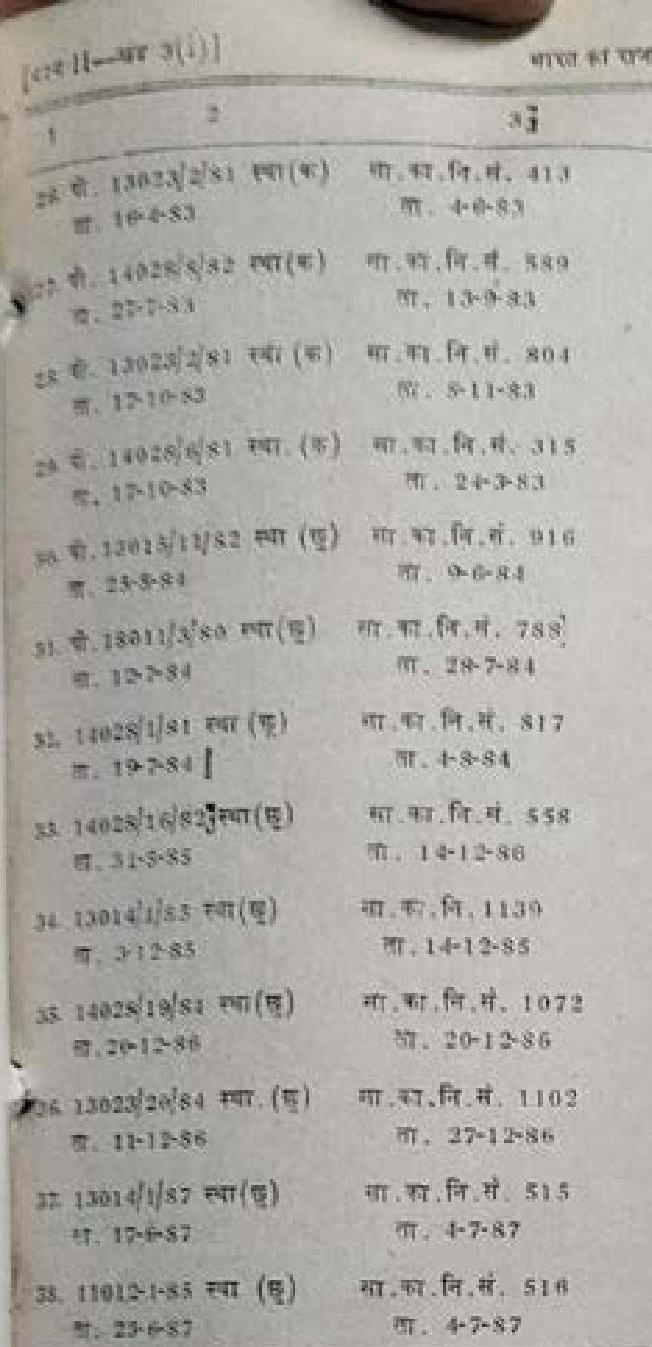 [भाग II—खंड 3(i)] भारत का
1 2 3
26. पी. 13023/2/81 स्था(क) सा.का.नि.सं. 413
ता. 16-4-83 ता. 4-6-83
27. पी. 14028/8/82 स्था(क) सा.का.नि.सं. 589
ता. 27-7-83 ता. 13-9-83
28. पी. 13023/2/81 स्था (क) सा.का.नि.सं. 804
ता. 17-10-83 ता. 5-11-83
29. पी. 14028/6/81 स्था. (क) सा.का.नि.सं. 315
ता. 17-10-83 ता. 24-3-83
30. पी. 13015/11/82 स्था (छु) सा.का.नि.सं. 916
ता. 25-5-84 ता. 9-6-84
31. पी. 18011/3/80 स्था(छु) सा.का.नि.सं. 788
ता. 12-7-84 ता. 28-7-84
32. 14028/1/81 स्था (छु) सा.का.नि.सं. 817
ता. 19-7-84 ता. 4-8-84
33. 14028/16/82 स्था(छु) सा.का.नि.सं. 558
ता. 31-5-85 ता. 14-12-86
34. 13014/1/85 स्था(छु) सा.का.नि. 1139
ता. 3-12-85 ता. 14-12-85
35. 14028/19/84 स्था(छु) सा.का.नि.सं. 1072
ता. 20-12-86 ता. 20-12-86
36. 13023/20/84 स्था. (छु) सा.का.नि.सं. 1102
ता. 11-12-86 ता. 27-12-86
37. 13014/1/87 स्था(छु) सा.का.नि.सं. 515
ता. 17-6-87 ता. 4-7-87
38. 11012-1-85 स्था (छु) सा.का.नि.सं. 516
ता. 23-6-87 ता. 4-7-87